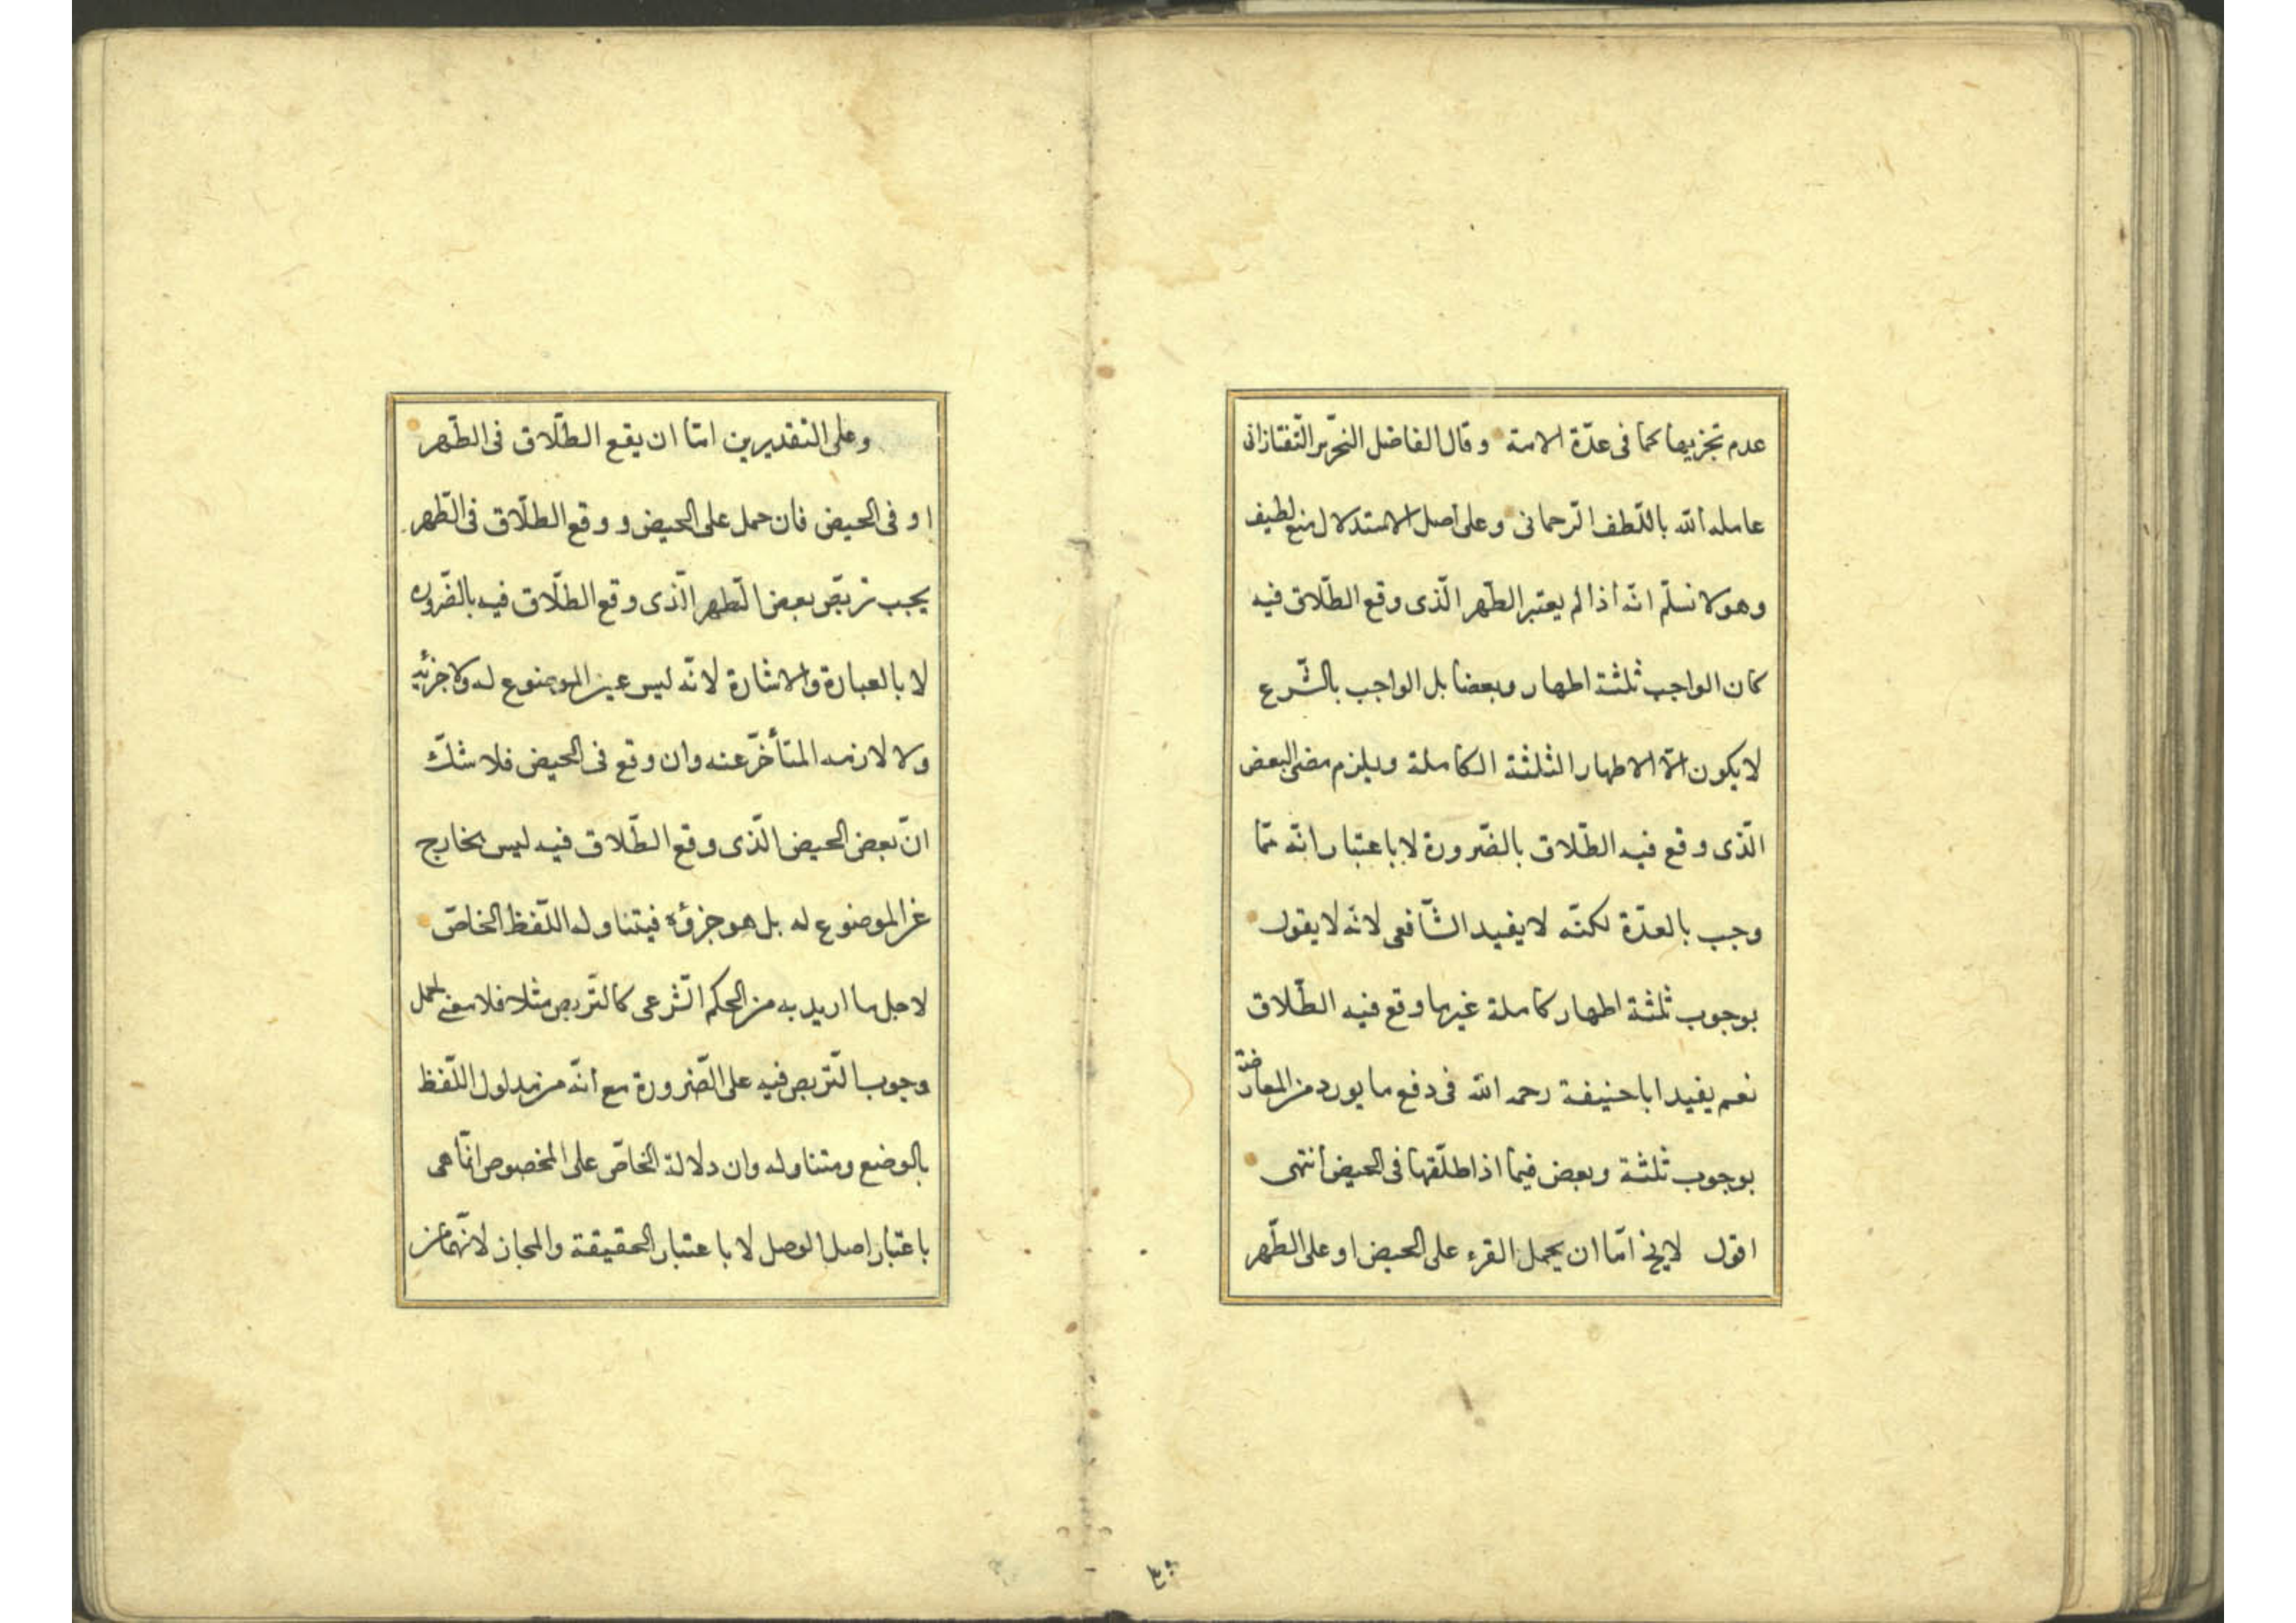 عدم تجزيها كما فى عدّة الامة وقال الفاضل النحرير التّفتازانى
عامله الله باللّطف الرّحمانى وعلى اصل الاستدلال منع لطيف
وهو لا نسلّم انّه اذا لم يعتبر الطّهر الّذى وقع الطّلاق فيه
كان الواجب ثلثة اطهار وبعضا بل الواجب بالشّرع
لا يكون الّا الاطهار الثلثة الكاملة ويلزم مضى البعض
الّذى وقع فيه الطّلاق بالضّرورة لا باعتبار انّه ممّا
وجب بالعدّة لكنّه لا يفيد الشّافعى لانّه لا يقول
بوجوب ثلثة اطهار كاملة غير ما وقع فيه الطّلاق
نعم يفيد ابا حنيفة رحمه الله فى دفع ما يورد من المعارضة
بوجوب ثلثة وبعض فيما اذا طلّقها فى الحيض انتهى
اقول لا يخ امّا ان يحمل القرء على الحيض او على الطّهر
وعلى التقديرين امّا ان يقع الطّلاق فى الطّهر
او فى الحيض فان حمل على الحيض ووقع الطلّاق فى الطّهر
يجب تربّص بعض الطّهر الّذى وقع الطلّاق فيه بالضّروره
لا بالعبارة والاشارة لانّه ليس عين الموضوع له ولا جزئه
ولا لازمه المتأخّر عنه وان وقع فى الحيض فلا شكّ
انّ بعض الحيض الّذى وقع الطّلاق فيه ليس بخارج
عن الموضوع له بل هو جزؤه فيتناوله اللّفظ الخاصّ
لاجل ما اريد به من الحكم الشّرعى كالتّربص مثلا فلا معنى لحمل
وجوب التّربص فيه على الضّرورة مع انّه من مدلول اللّفظ
بالوضع ومتناوله وان دلالة الخاصّ على المخصوص انّما هى
باعتبار اصل الوصل لا باعتبار الحقيقة والمجاز لانّهما من